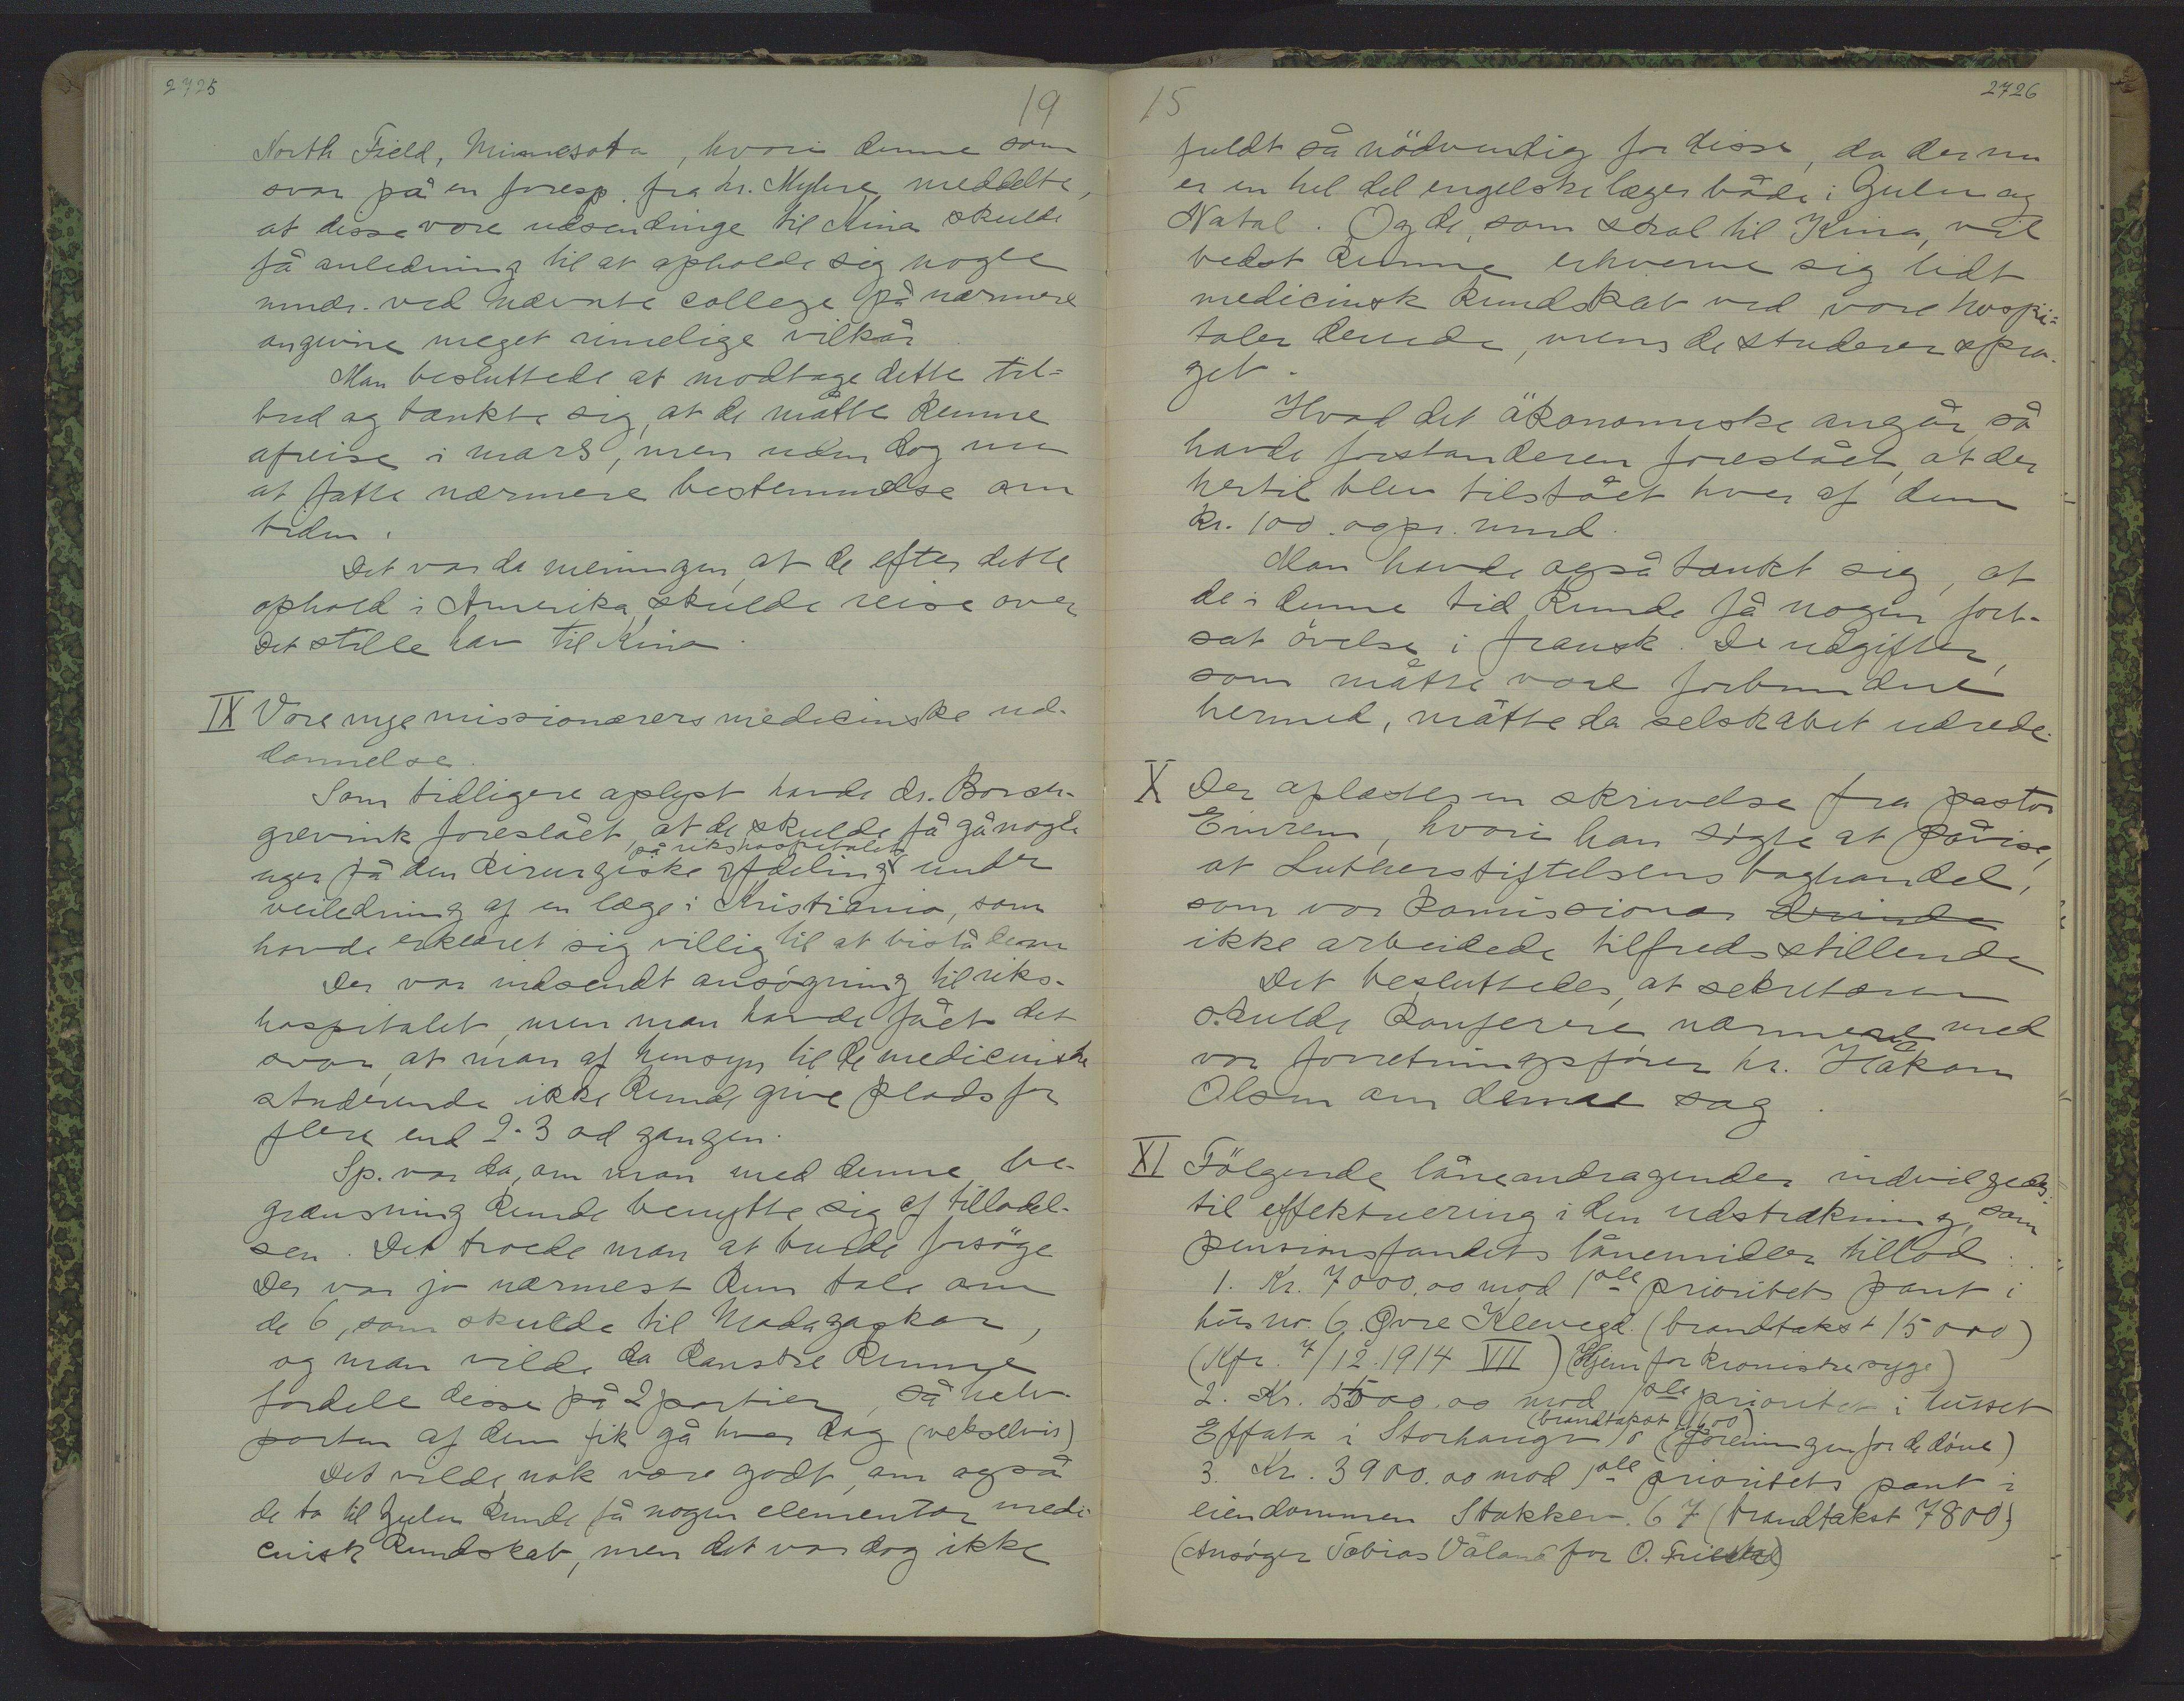 2725
19
North Field, Minnesota, hvori denne som
svar på en foresp. fra hr. Myhre meddelte,
at disse vore udsendinge til Kina skulde
få anledning til at opholde sig nogle
mndr. ved nævnte college på nærmere
angivne meget rimelige vilkår.
Man besluttede at modtage dette til=
bud og tænkte sig, at de måtte kunne
afreise i mars, men uden dog nu
at fatte nærmere bestemmelse om
tiden.
Det var da meningen, at de efter dette
ophold i Amerika, skulde reise over
det stille hav til Kina.
IX Vore nye missionærers medicinske ud-
dannelse.
Som tidligere oplyst havde dr. Borch-
grevink foreslået, at de skulde få gå nogle
på rikshospitalet
uger på den kirurgiske afdeling under
veiledning af en læge i Kristiania, som
havde erklæret sig villig til at bistå dem
Der var indsendt ansögning til riks-
hospitalet, men man havde fået det
svar, at man af hensyn til de medicinske
studerende ikke kunde give plads for
flere end 2-3 ad gangen.
Sp. var da, om man med denne be-
grænsning kunde benytte sig af tilladel-
sen. Det troede man at burde forsöge
Der var jo nærmest kun tale om
de 6, som skulde til Madagaskar,
og man vilde da kanske kunne
fordele disse på 2 partier, så halv-
parten af dem fik gå hver dag (vekselvis)
Det vilde nok være godt, om også
de to til Zulu kunde få nogen elementær medi-
cinsk kundskab, men det var dog ikke
15
2726
fuldt så nödvendig for disse, da der nu
er en hel del engelske læger både i Zulu og
Natal. Og de, som skal til Kina, vil
bedst kunne erhverve sig lidt
medicinsk kundskab ved vore hospi=
taler derude, mens de studerer spro-
get.
Hvad det økonomiske angår, så
havde forstanderen foreslået, at der
hertil blev tilstået hver af dem
kr. 100.00 pr. mnd.
Man havde også tænkt sig, at
de i denne tid kunde få nogen fort-
sat övelse i fransk. De udgifter,
som måtte være forbundne
hermed, måtte da selskabet udrede.
X Der oplæstes en skrivelse fra pastor
Einrem, hvori han søgte at påvise,
at Lutherstiftelsens boghandel,
som vor kommissionær
ikke arbeidede tilfredsstillende
Det besluttedes, at sekretæren
skulde konferere nærmere med
vor forretningsfører hr. Håkon
Olsen om denne sag.
XI Fölgende låneandragender indvilgedes
til effektuering i den udstrækning, som
pensionsfondets lånemidler tillod.
1. Kr. 7000.00 mod 1ste prioritets pant i
hus no. 6 Øvre Klevegd. (brandtakst 15000)
(Kfr. 7/12.1914 VII) (Hjem for kroniske syge)
2. Kr. 5500.00 mod 1ste prioritet i huset
(brandtakst 11600)
Effata i Storhaugv (foreningen for de døve)
3. Kr. 3900.00 mod 1ste prioritets pant i
eiendommen Stokkev. 67 (brandtakst 7800)
(Ansøger Tobias Våland for O.